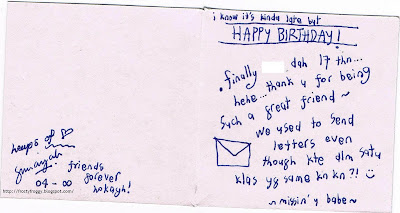 heaps of
friends
04 - ∞ forever
hokayh!
http://rootyfroggy.blogspot.com
i know it's kinda late but
HAPPY BIRTHDAY!
finally dah 17 thn...
hehe... thank u for being
such a great friend ~
we used to send
letters even
though kte dlm satu
klas yg same kn kn?! :)
~ missin' y babe ~